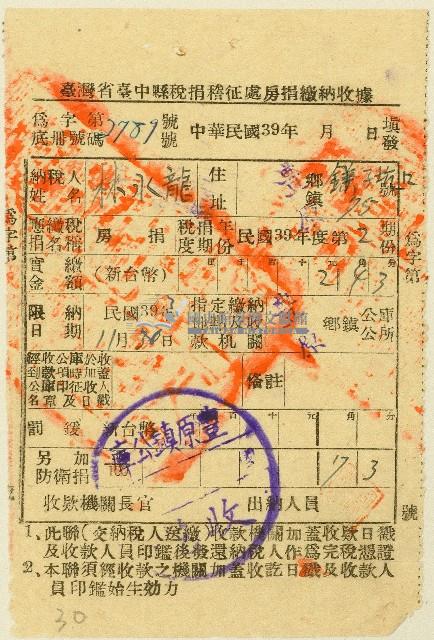 臺灣省臺中縣稅捐稽征處房捐繳納收據
為字第 號 填發
底冊號碼2789號 中華民國39年 月 日
納稅人姓名 林水龍 住址 鄉鎮 75號
應繳稅捐名稱 房捐 稅捐年度期份 民國39年度第2期份
實繳金額 (新台幣) 百 十 元 角 分 2 4 3
限納日期 民國39年11月30日 指定繳納及收款機關 鄉鎮公庫公所
經收款公庫於收證到公項時加收人名庫印征及日戳章 备註
罰鍰 新台幣 百 十 元 角 分
另加防衛捐 1 7 3
收款機關長官 出納人員
為字第 號
為字第
豐原鎮公庫
收
1、此聯(交納稅人送繳收款機關加蓋收款日戳
及收款人員印鑑後發還納稅人作為完稅憑證
2、本聯須經收款之機關加蓋收訖日戳及收款人
員印鑑始生効力
30